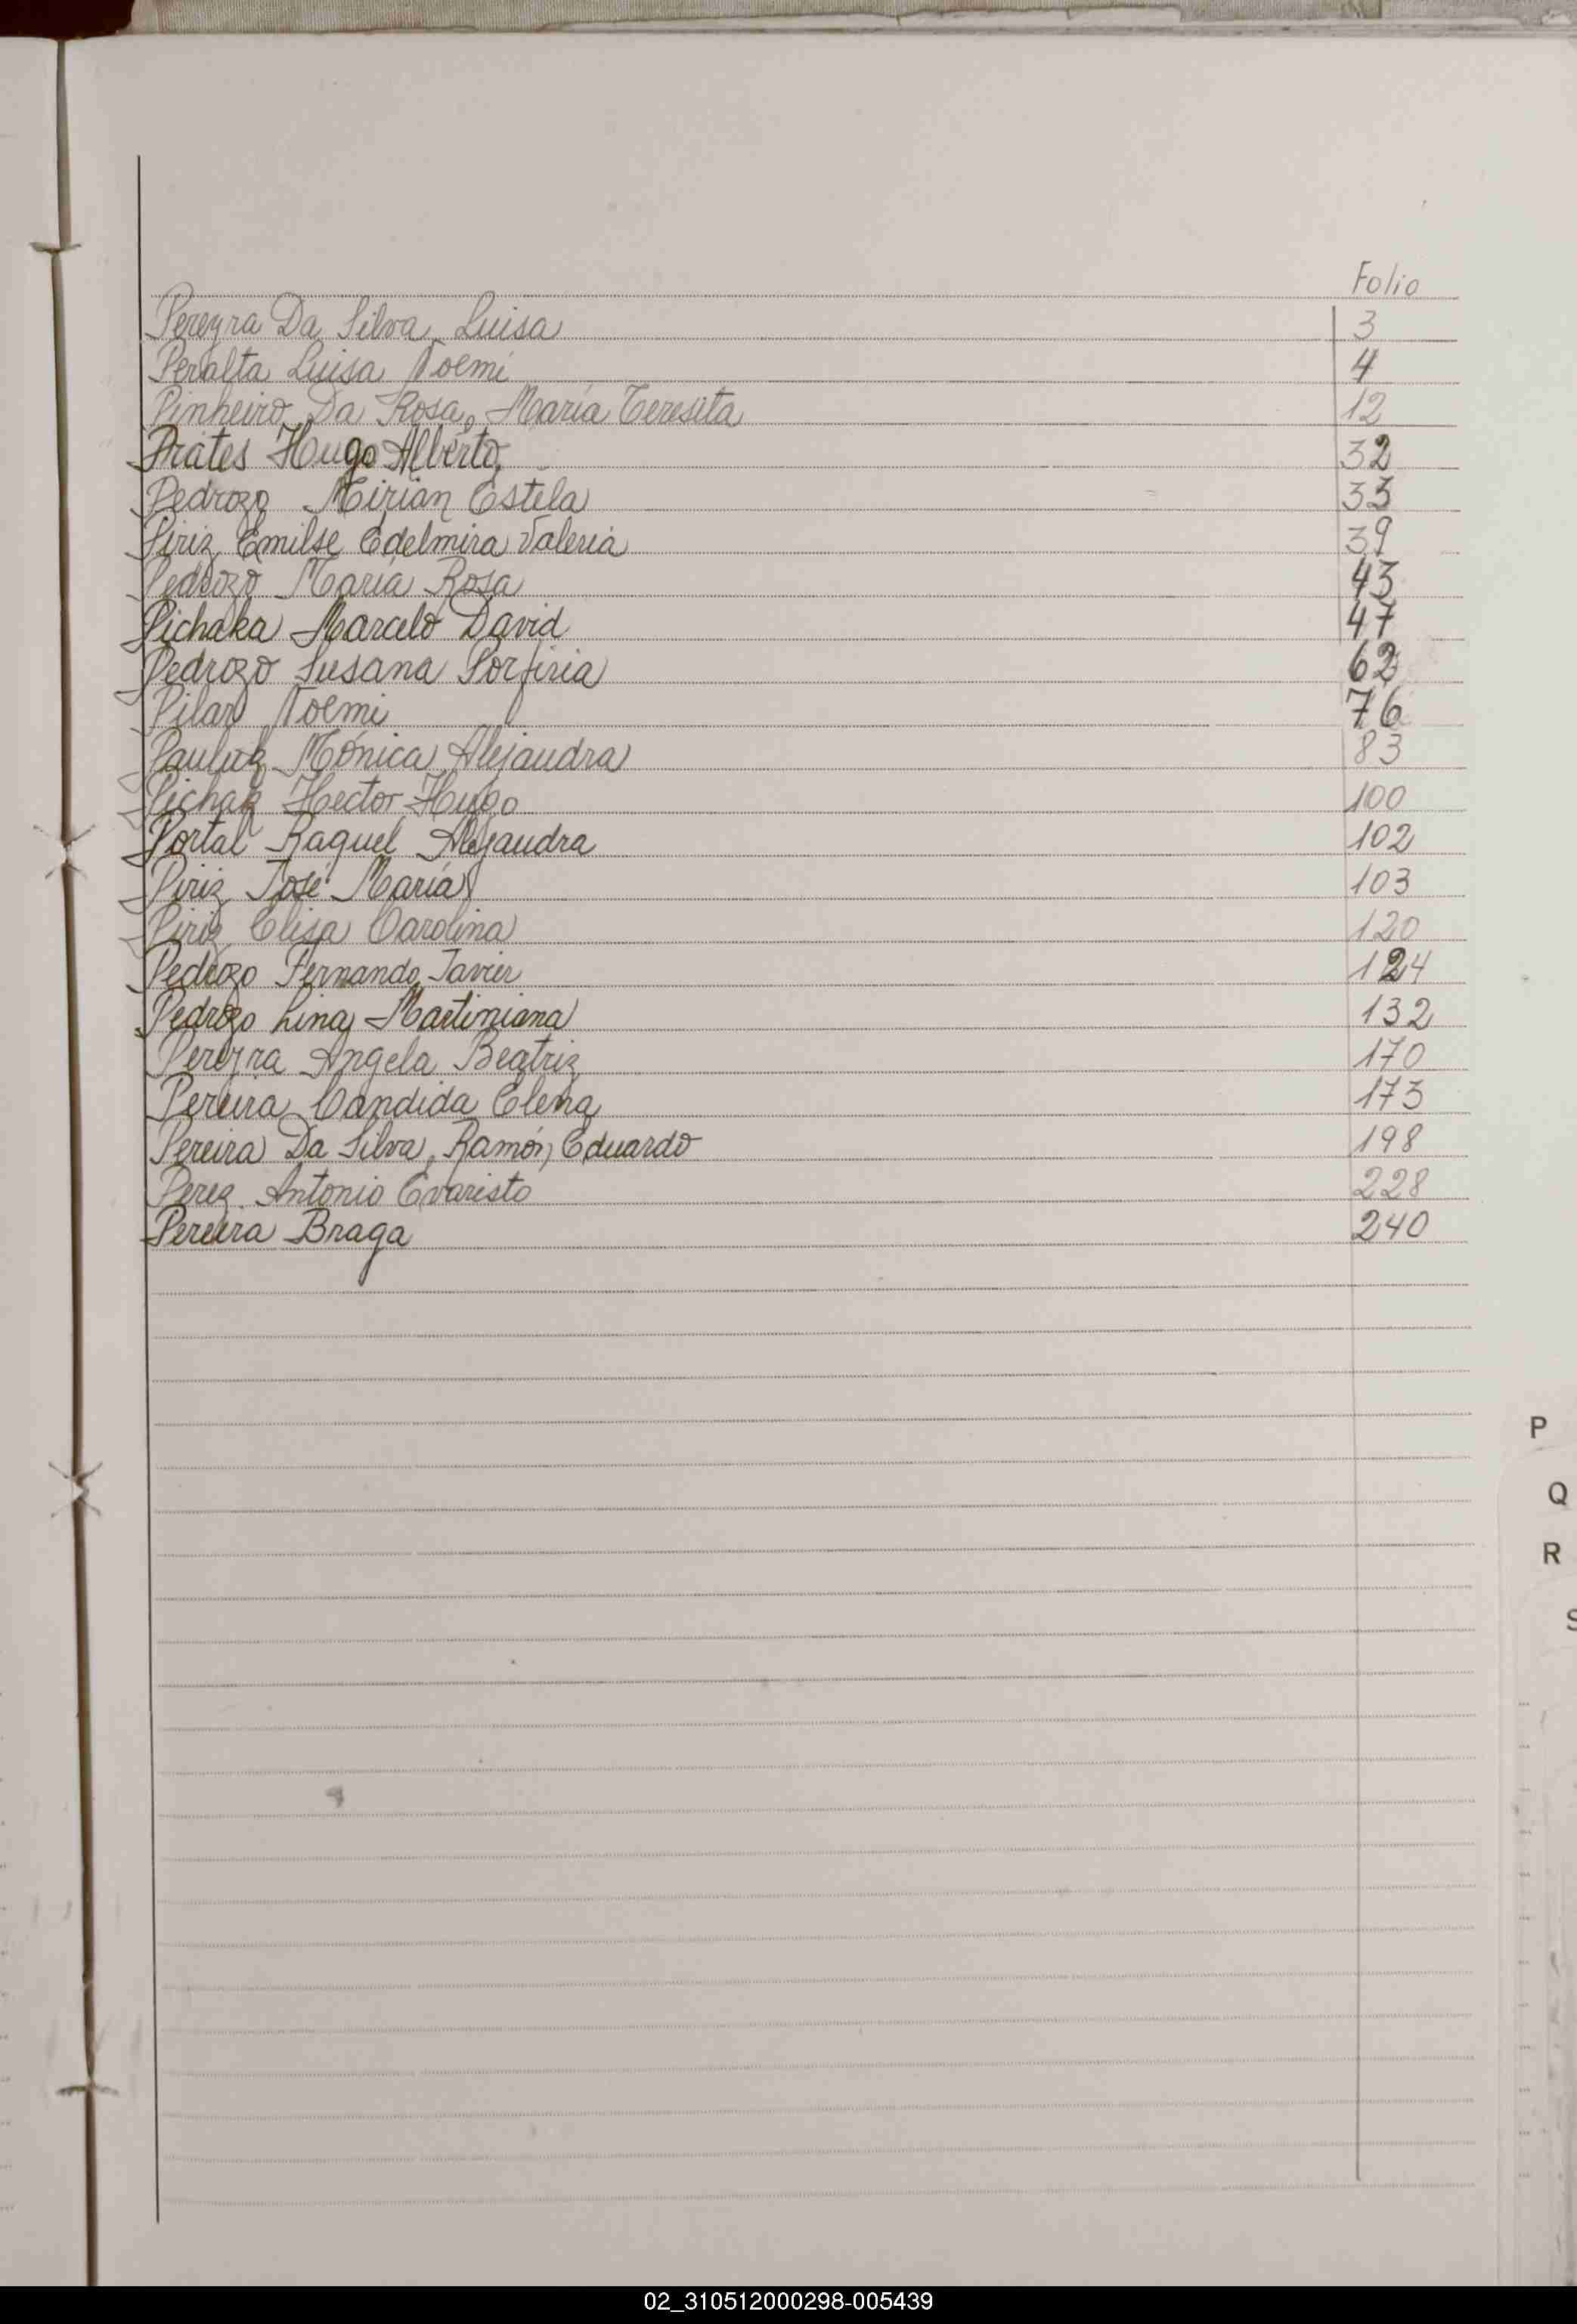 Folio
Pereyra Da Silva, Luisa 3
Peralta Luisa Noemí 4
Pinheiro Da Rosa, María Teresita 12
Prates Hugo Alberto 32
Pedrozo Mirian Estela 33
Piriz Emilse Edelmira Valeria 39
Pedrozo María Rosa 43
Pichaka Marcelo David 47
Pedrozo Susana Porfiria 62
Pilar Noemi 76
Pauluk Mónica Alejandra 83
Pichak Hector Hugo 100
Portal Raquel Alejandra 102
Piriz José María 103
Piriz Elisa Carolina 120
Pedrozo Fernando Javier 124
Pedrozo Lina Martiniana 132
Pereyra Angela Beatriz 170
Pereira Candida Elena 173
Pereira Da Silva, Ramón Eduardo 198
Perez Antonio Evaristo 228
Pereira Braga 240
P
Q
R
S
02_310512000298-005439